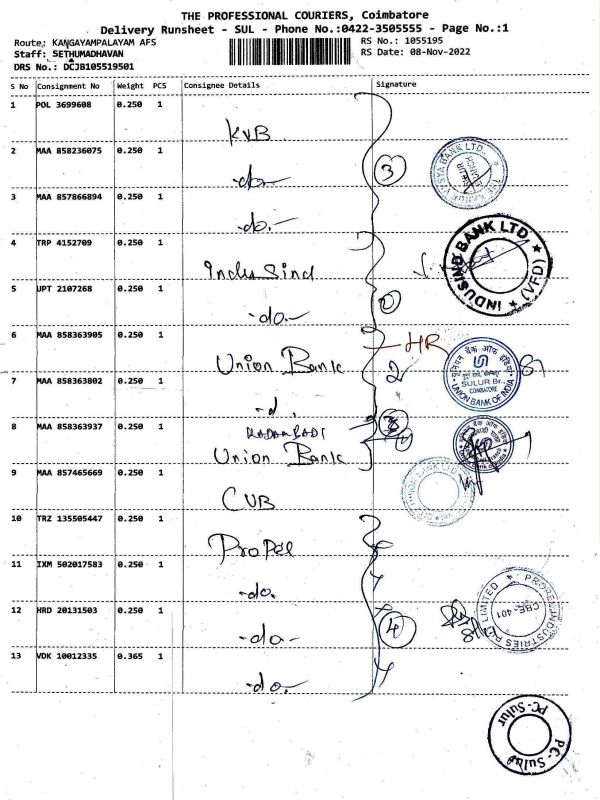 THE PROFESSIONAL COURIERS, Coimbatore
Delivery Runsheet - SUL - Phone No.:0422-3505555 - Page No.:1
Route: KANGAYAMPALAYAM AFS
RS No.: 1055195
Staff: SETHUMADHAVAN
RS Date: 08-Nov-2022
DRS No.: DCJB105519501
S No Consignment No Weight PCS Consignee Details Signature
1 POL 3699608 0.250 1 KVB
2 MAA 858236075 0.250 1 -do-
3 MAA 857866894 0.250 1 -do.-
3
THE KARUR VYSYA BANK LTD.
4 TRP 4152709 0.250 1 Indus Sind
5 UPT 2107268 0.250 1 -do.-
INDUSIND BANK LTD. (VFD)
6 MAA 858363905 0.250 1 Union Bank
HR
7 MAA 858363802 0.250 1 -d.
2
यूनियन बैंक ऑफ इंडिया
SULUR Br.,
COIMBATORE
UNION BANK OF INDIA
8 MAA 858363937 0.250 1 KADAMPADI
Union Bank
9 MAA 857465669 0.250 1 CUB
UNION BANK LTD
10 TRZ 135505447 0.250 1 Propel
11 IXM 502017583 0.250 1 -do.
12 HRD 20131503 0.250 1 -do-
4
PROPEL INDUSTRIES PVT LIMITED
CBE-401
13 VDK 10012335 0.365 1 -do.-
PC-Sulur
PC-Sulur
Sulur